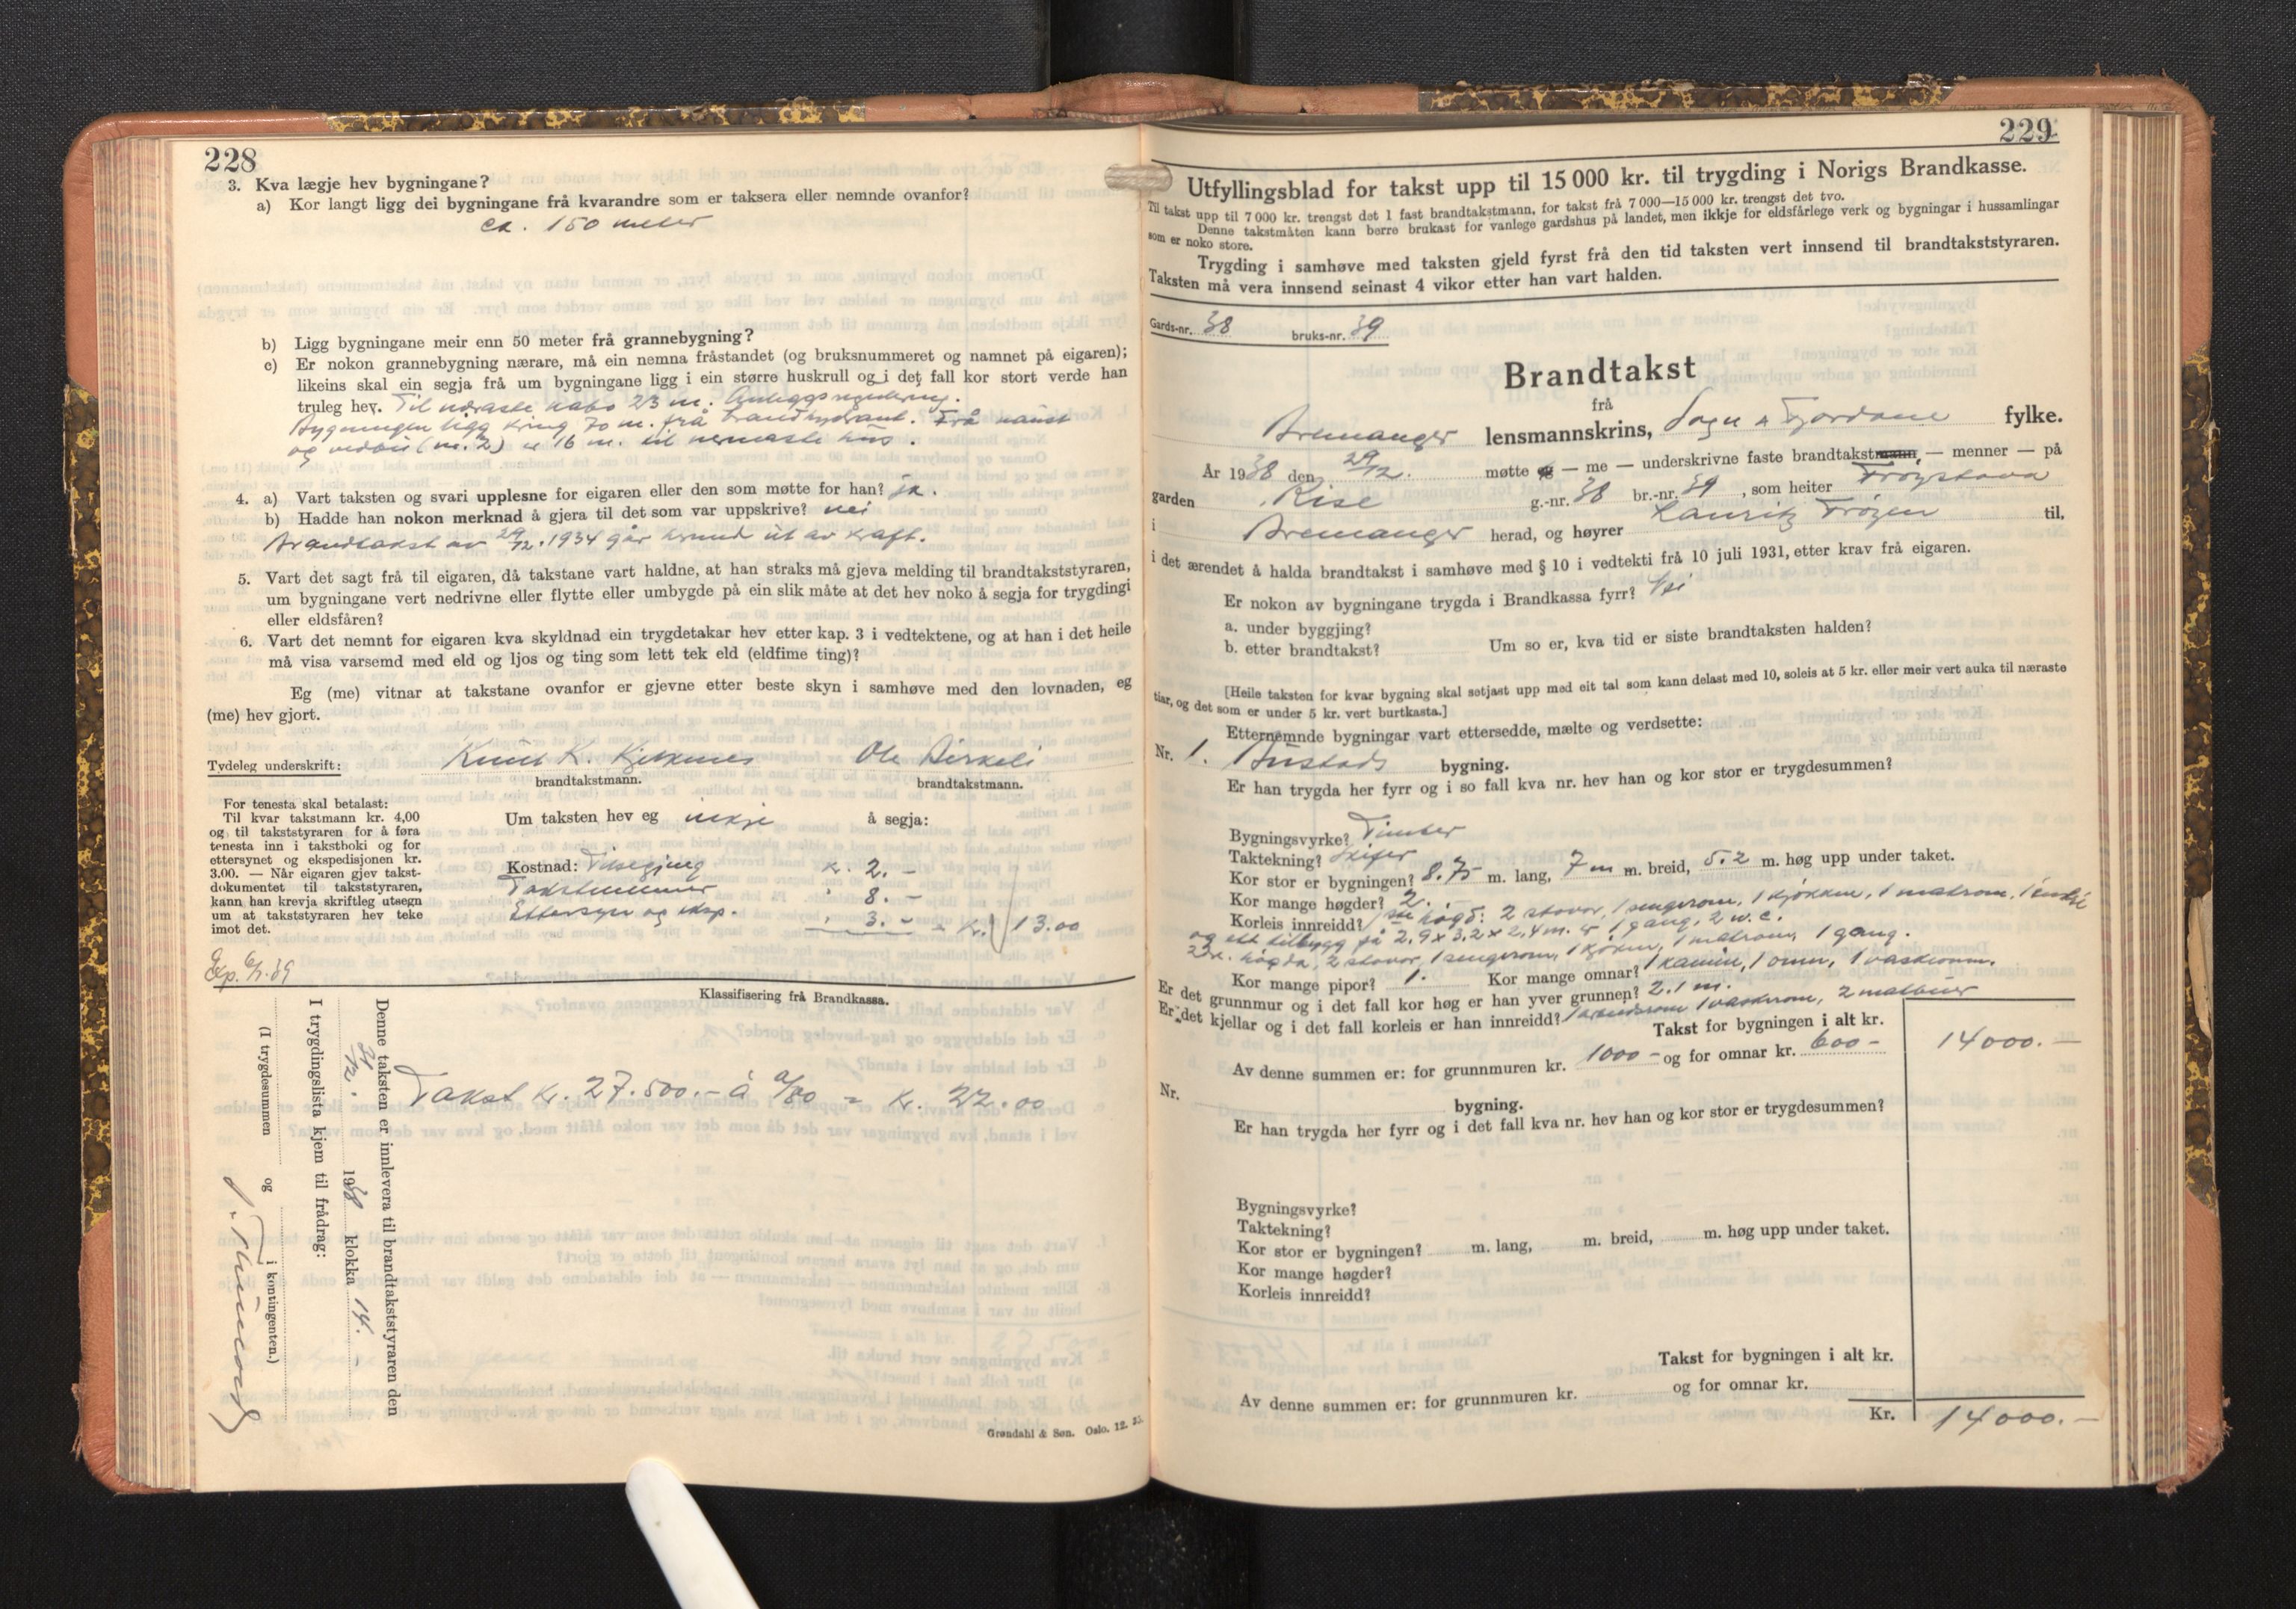 228
3. Kva lægje hev bygningane?
a) Kor langt ligg dei bygningane frå kvarandre som er taksera eller nemnde ovanfor?
ca. 150 meter
b) Ligg bygningane meir enn 50 meter frå grannebygning?
c) Er nokon grannebygning nærare, må ein nemna fråstandet (og bruksnummeret og namnet på eigaren);
likeins skal ein segja frå um bygningane ligg i ein større huskrull og i det fall kor stort verde han
truleg hev. Til næraste nabo 23 m. Anleggsregulering.
Bygningen ligg kring 70 m. frå brandhydrant. Frå naust
og vedbu (nr. 2) er 16 m. til nermaste hus.
4. a) Vart taksten og svari upplesne for eigaren eller den som møtte for han? ja.
b) Hadde han nokon merknad å gjera til det som var uppskrive? nei
Brandtakst av 29/12.1934 går hermed ut av kraft.
5. Vart det sagt frå til eigaren, då takstane vart haldne, at han straks må gjeva melding til brandtakststyraren,
um bygningane vert nedrivne eller flytte eller umbygde på ein slik måte at det hev noko å segja for trygdingi
eller eldsfåren?
6. Vart det nemnt for eigaren kva skyldnad ein trygdetakar hev etter kap. 3 i vedtektene, og at han i det heile
må visa varsemd med eld og ljos og ting som lett tek eld (eldfime ting)?
Eg (me) vitnar at takstane ovanfor er gjevne etter beste skyn i samhøve med den lovnaden, eg
(me) hev gjort.
Tydeleg underskrift: Knut K. Ole Birkeli
brandtakstmann. brandtakstmann.
For tenesta skal betalast:
Til kvar takstmann kr. 4,00
og til takststyraren for å føra
tenesta inn i takstboki og for
ettersynet og ekspedisjonen kr.
3.00. — Når eigaren gjev takst-
dokumentet til takststyraren,
kann han krevja skriftleg utsegn
um at takststyraren hev teke
imot det.
Um taksten hev eg inkje å segja:
Kostnad: Tilsegjing kr. 2.-
Takstmenner " 8.-
Ettersyn og eksp. " 3.- = kr. 13.00
Exp. 6/1.39
Klassifisering frå Brandkassa.
Takst kr. 27.500.- à 0/80 = kr. 22.00
Denne taksten er innlevera til brandtakststyraren den
31/12. 1938 klokka 14. -
I trygdingslista kjem til frådrag:
(I trygdesummen og i kontingenten.)
Grøndahl & Søn. Oslo. 12. 35.
229
Utfyllingsblad for takst upp til 15 000 kr. til trygding i Norigs Brandkasse.
Til takst upp til 7 000 kr. trengst det 1 fast brandtakstmann, for takst frå 7 000—15 000 kr. trengst det tvo.
Denne takstmåten kann berre brukast for vanlege gardshus på landet, men ikkje for eldsfårlege verk og bygningar i hussamlingar
som er noko store.
Trygding i samhøve med taksten gjeld fyrst frå den tid taksten vert innsend til brandtakststyraren.
Taksten må vera innsend seinast 4 vikor etter han vart halden.
Gards-nr. 38 bruks-nr. 39
Brandtakst
frå
Bremanger lensmannskrins, Sogn & Fjordane fylke.
År 1938 den 29/12. møtte eg — me — underskrivne faste brandtakstmann, — menner — på
garden Rise g.-nr. 38 br.-nr. 39, som heiter Frøystova
i Bremanger herad, og høyrer Lauritz Frøyen til,
i det ærendet å halda brandtakst i samhøve med § 10 i vedtekti frå 10 juli 1931, etter krav frå eigaren.
Er nokon av bygningane trygda i Brandkassa fyrr? Nei
a. under byggjing?
b. etter brandtakst? Um so er, kva tid er siste brandtaksten halden?
[Heile taksten for kvar bygning skal setjast upp med eit tal som kann delast med 10, soleis at 5 kr. eller meir vert auka til næraste
tiar, og det som er under 5 kr. vert burtkasta.]
Etternemnde bygningar vart ettersedde, mælte og verdsette:
Nr. 1. Bustads bygning.
Er han trygda her fyrr og i so fall kva nr. hev han og kor stor er trygdesummen?
Bygningsvyrke? Timber
Taktekning? Skifer
Kor stor er bygningen? 8.75 m. lang, 7 m m. breid, 5.2 m. høg upp under taket.
Kor mange høgder? 2.
Korleis innreidd? 1ste høgd: 2 stovor, 1 sengerom, 1 kjøkken, 1 matrom,
og ett tilbygg på 2.9 x 3.2 x 2,4 m. 1 gang, 2 w.c.
2dre. høgda, 2 stovor, 1 sengerom, 1 kjøken, 1 matrom, 1 gang.
Kor mange pipor? 1. Kor mange omnar? 1 kamin, 1 omn, 1 vaskeomn.
Er det grunnmur og i det fall kor høg er han yver grunnen? 2.1 m.
Er det kjellar og i det fall korleis er han innreidd? 1 arbeidsrom 1 vaskerom, 2 matbuer
Takst for bygningen i alt kr. 14000.—
Av denne summen er: for grunnmuren kr. 1000 - og for omnar kr. 600 -
Nr. bygning.
Er han trygda her fyrr og i det fall kva nr. hev han og kor stor er trygdesummen?
Bygningsvyrke?
Taktekning?
Kor stor er bygningen? m. lang, m. breid, m. høg upp under taket.
Kor mange høgder?
Korleis innreidd?
Takst for bygningen i alt kr.
Av denne summen er: for grunnmuren kr. og for omnar kr.
Kr. 14000.—